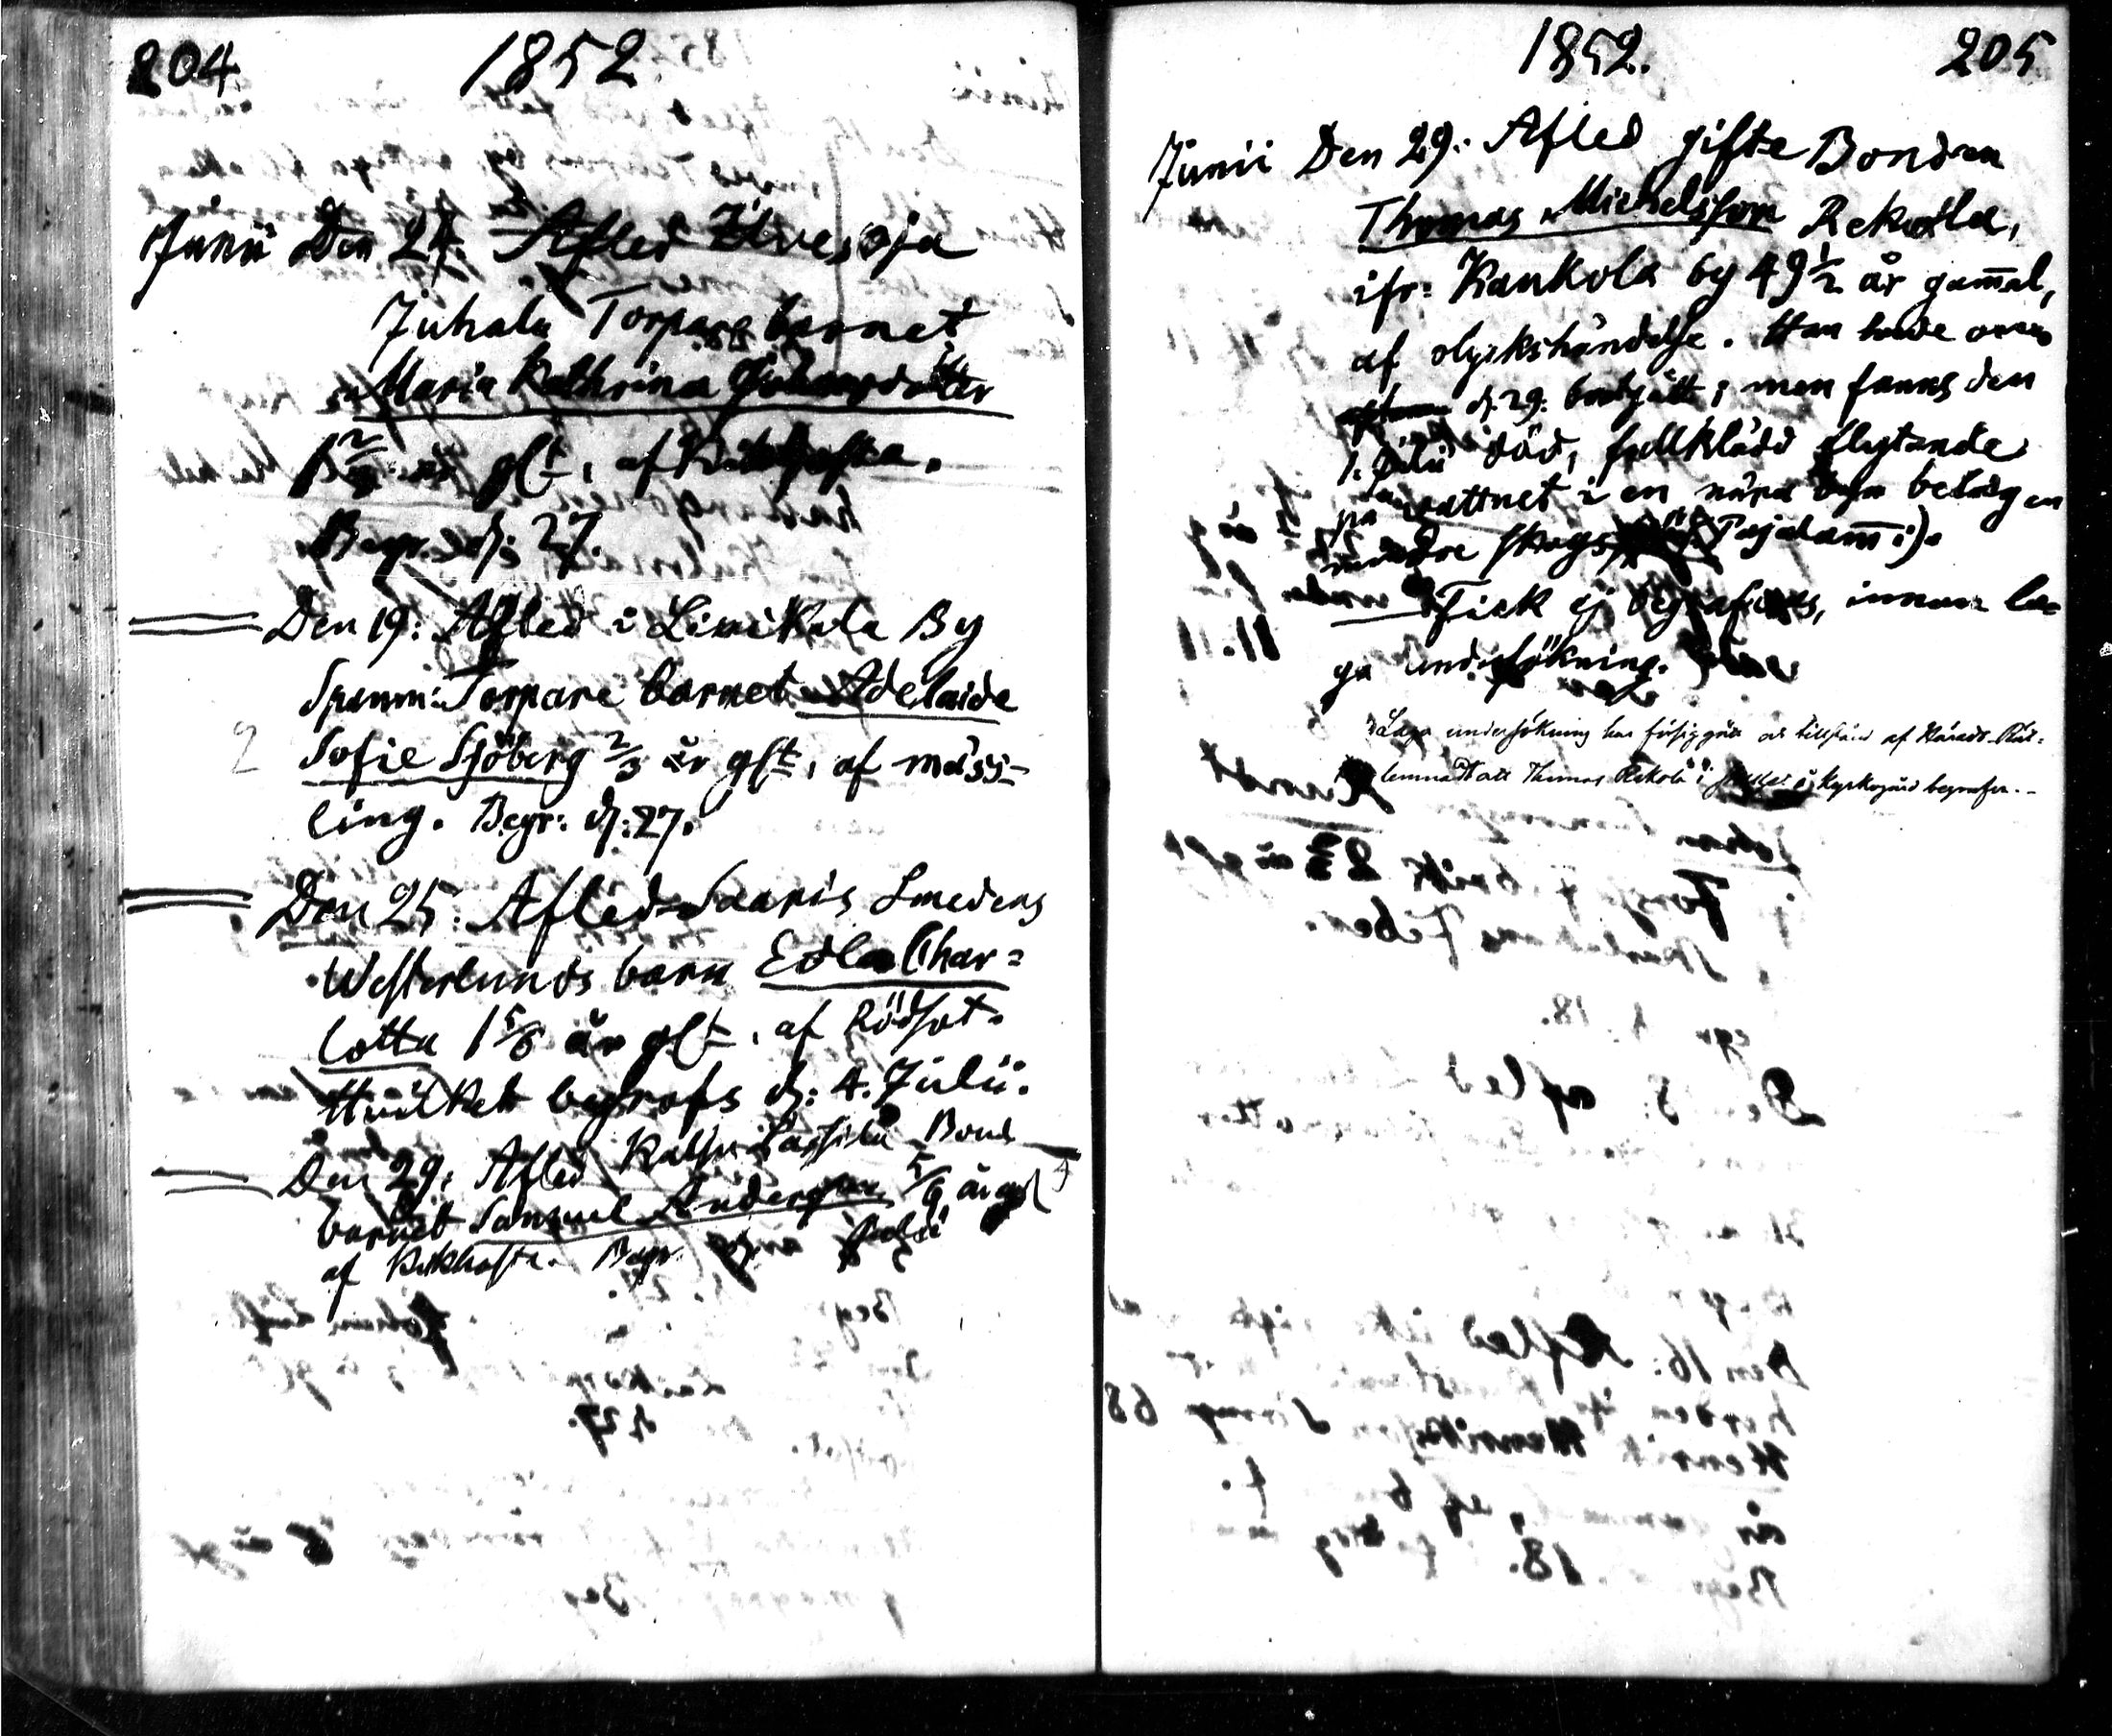 204 1852
Junii Den 24. Afled Ilvesoja
Juhala Torpare barnet
Maria Kathrina Johansdotter
1 2/3 år glt, af Kikhosta.
Begr. d: 27.
Den 19: Afled i Linikala By
Spanm: Torpare barnet Adelaide
2 Sofie Sjöberg 2/3 år glt, af mäss-
ling. Begr: d: 27.
Den 25: Afled Saaris Smedens
Westerlunds barn Edla Char=
lotta 1 5/6 år glt, af Rödsot.
Hvilket begrofs d: 4. Julii.
Den 29: Afled Lassila Bonde
barnet Samuel Andersson 5/6 år gl
af Kikhosta. Begr. Julii
1852. 205
Junii Den 29: Afled gifte Bonden
Thomas Michelsson Rekola,
ifr: Kankola by 49 1/2 år gamal,
af olyckshändelse. Han hade
d. 29. bortgått; men fanns den
1. Julii död, fullklädd flytande
på vattnet i en nära byn belägen
mindre skogs Pajalam:).
Fick ej begrafvas, innan la=
ga undersökning.
Laga undersökning har försiggått och tillstånd af Härads-Rät=
lemnadt att Thomas Rekola i kyrkogård begrafva.-